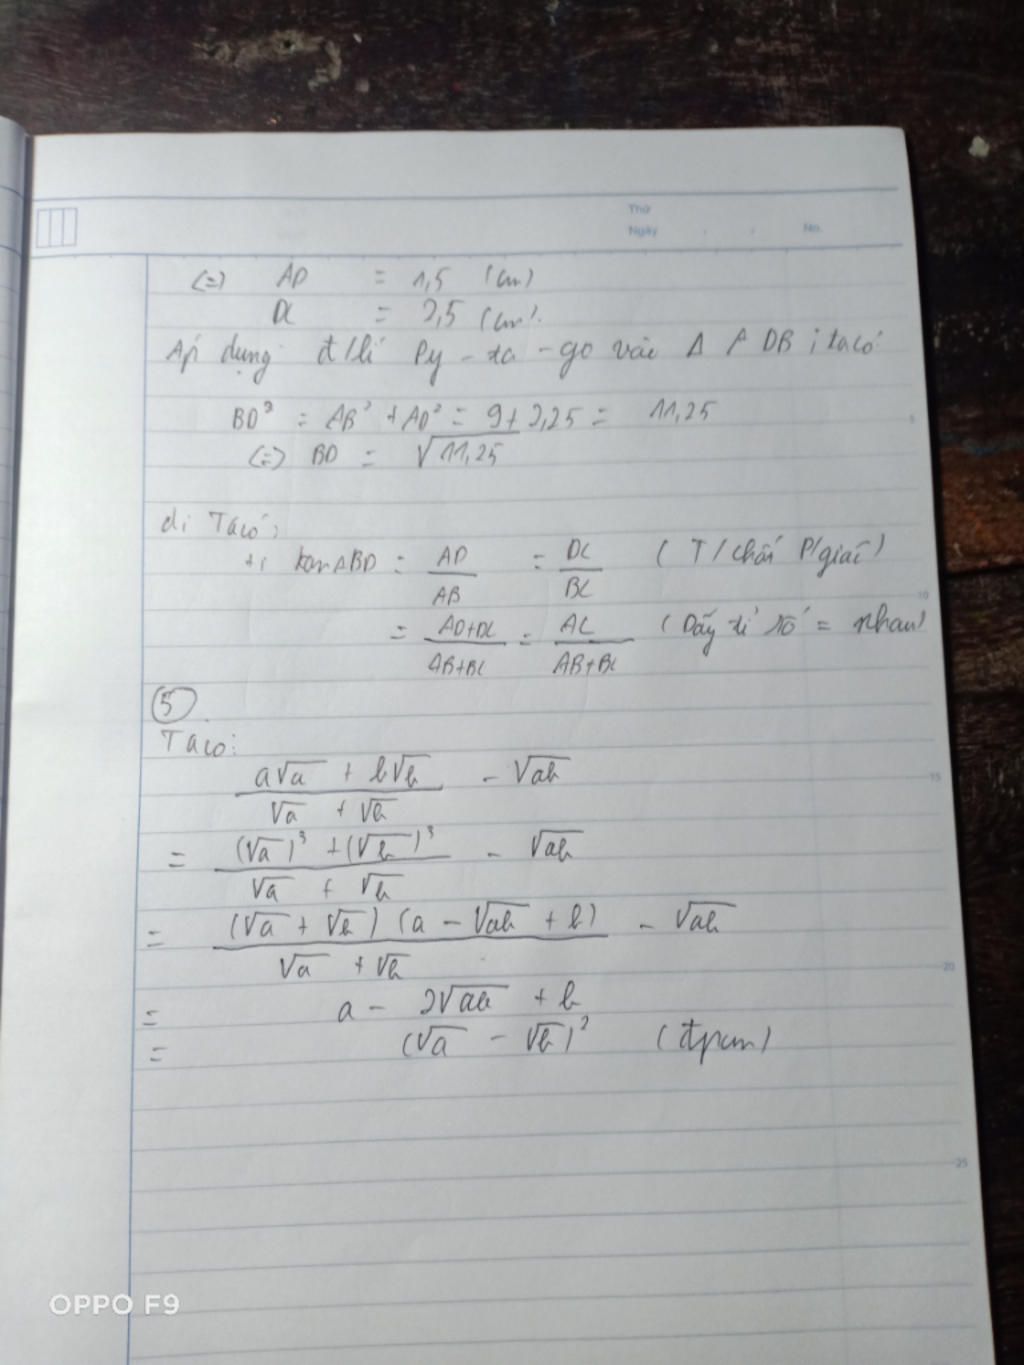 Thứ
Ngày . . No.
(=) AD = 1,5 (cm)
DC = 2,5 (cm).
Áp dụng đ/lí Py-ta-go vào Δ ADB ; ta có:
BD² = AB² + AD² = 9 + 2,25 = 11,25
(=) BD = √11,25
d; Ta có;
+; tan ABD = AD/AB = DC/BC (T/chất P/giác)
= AD+DC/AB+BC = AC/AB+BC (Dãy tỉ số = nhau)
5
Ta có:
a√a + b√b / √a + √b - √ab
= (√a)³ + (√b)³ / √a + √b - √ab
= (√a + √b)(a - √ab + b) / √a + √b - √ab
= a - 2√ab + b
= (√a - √b)² (đpcm)
5
10
15
20
25
OPPO F9